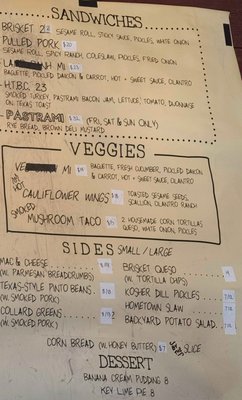 SANDWICHES
BRISKET 2 SESAME ROLL, STICKY SAUCE, PICKLES, WHITE ONION
PULLED PORK $20
SESAME ROLL, SPICY RANCH, COLESLAW, PICKLES, FRIED ONION
MI
BAGUETTE, PICKLED DAIKON & CARROT, HOT + SWEET SAUCE, CILANTRO
H.T.B.C. 23
SMOKED TURKEY, PASTRAMI BACON JAM, LETTUCE, TOMATO, DIJONNAISE
ON TEXAS TOAST
PASTRAMI (FRI, SAT & SUN ONLY)
RYE BREAD, BROWN DELI MUSTARD
VEGGIES
MI BAGUETTE, FRESH CUCUMBER, PICKLED DAIKON
& CARROT, HOT + SWEET SAUCE, CILANTRO
HOT
CAULIFLOWER WINGS TOASTED SESAME SEEDS,
SCALLION, CILANTRO RANCH
SMOKED
MUSHROOM TACO 2 HOUSEMADE CORN TORTILLAS
QUESO, WHITE ONION, PICKLES
SIDES SMALL/LARGE
MAC & CHEESE
(W. PARMESAN BREADCRUMBS)
TEXAS-STYLE PINTO BEANS
(W. SMOKED PORK)
COLLARD GREENS
(W. SMOKED PORK)
BRISKET QUESO
(W. TORTILLA CHIPS)
KOSHER DILL PICKLES
HOMETOWN SLAW
BACKYARD POTATO SALAD
CORN BREAD (W. HONEY BUTTER) $7 SLICE
DESSERT
BANANA CREAM PUDDING 8
KEY LIME PIE 8